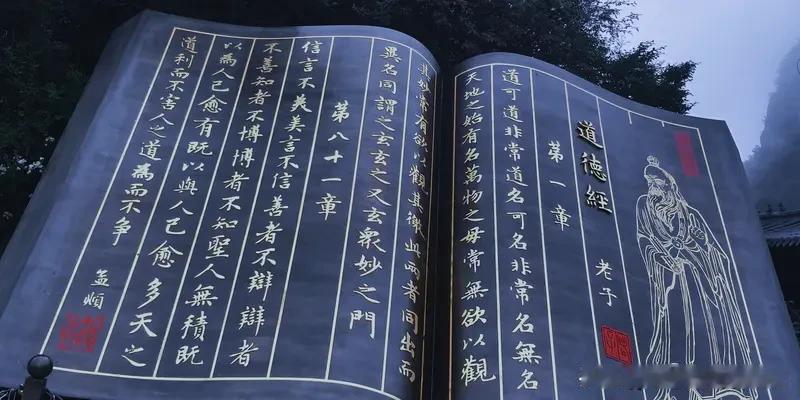 道德經
老子
第一章
道可道非常道名可名非常名無名
天地之始有名萬物之母常無欲以觀
其妙常有欲以觀其徼此兩者同出而
異名同謂之玄玄之又玄衆妙之門
第八十一章
信言不美美言不信善者不辯辯者
不善知者不博博者不知聖人無積既
以為人己愈有既以與人己愈多天之
道利而不害人之道為而不争
孟頫